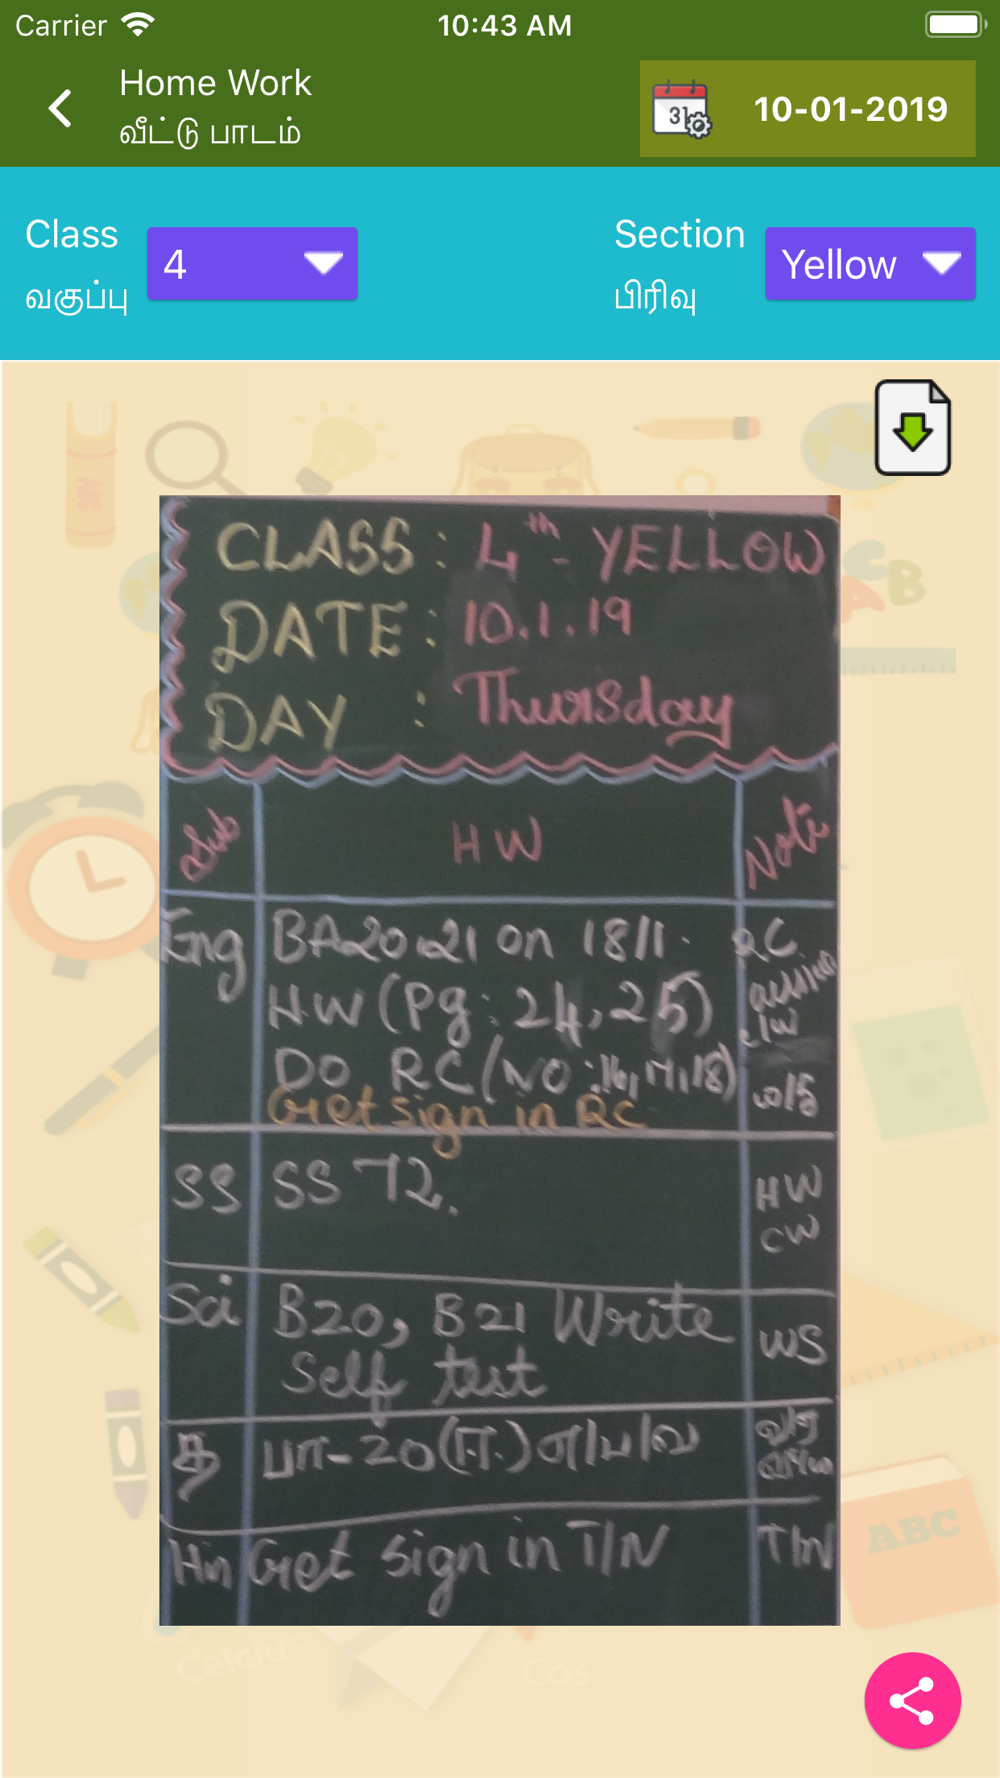 Carrier 10:43 AM
Home Work
வீட்டு பாடம்
31 10-01-2019
Class
வகுப்பு
4
Section
பிரிவு
Yellow
CLASS : 4th - YELLOW
DATE : 10.1.19
DAY : Thursday
Sub HW Note
Eng BA20,21 on 18/1. RC
HW (Pg: 24, 25)
c/w
DO RC (NO: 16, 17, 18)
Get sign in RC
SS SS T2. HW
CW
Sci B20, B21 Write WS
Self test
த பா-20
Hin Get sign in T/N T/N
ABC
Celcius
Cos